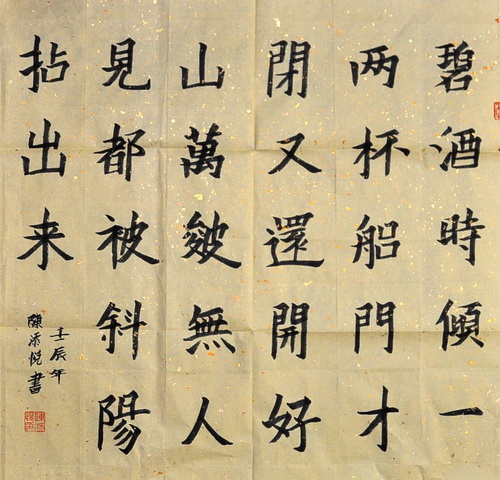 碧酒時傾一
两杯船門才
閉又還開好
山萬皴無人
見都被斜陽
拈出来
壬辰年
陳添悅書